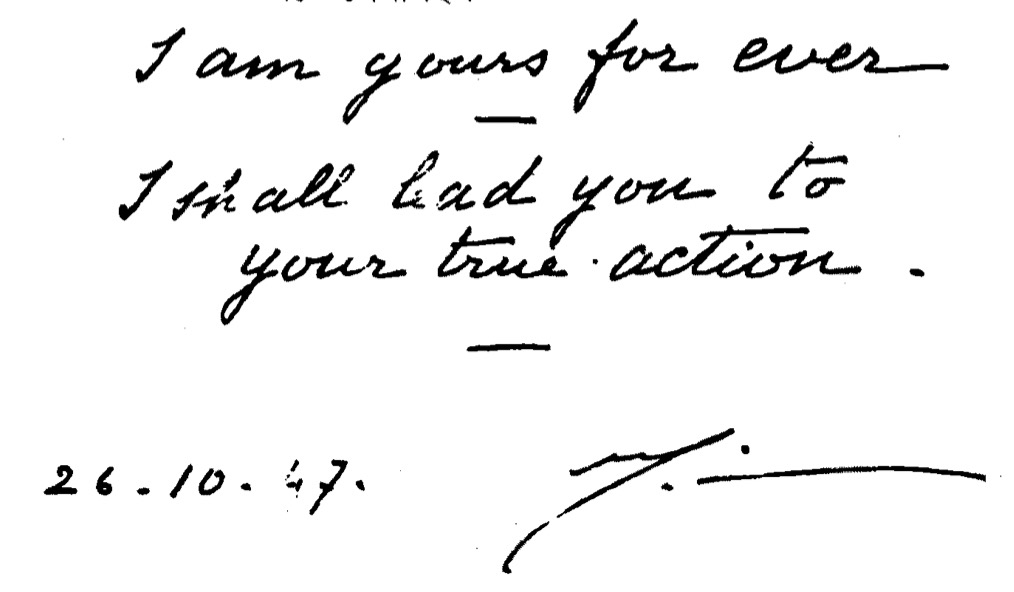 I am yours for ever
—
I shall lead you to
your true action.
—
26.10.47.